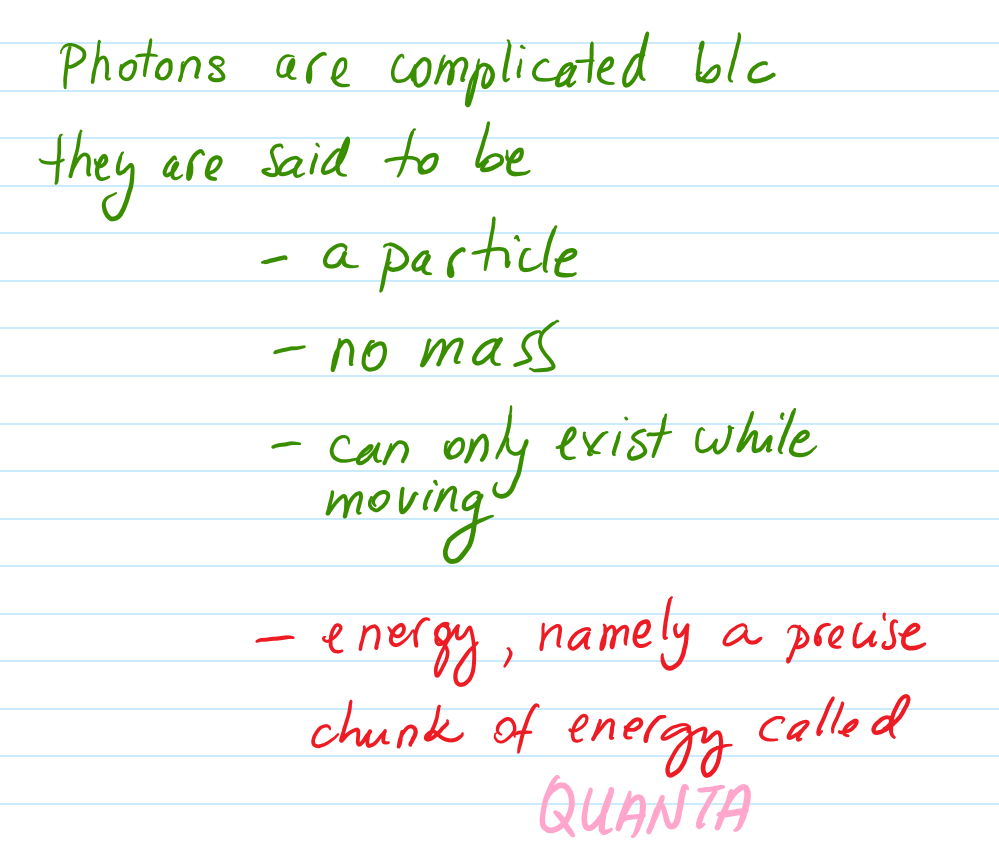 Photons are complicated b/c
they are said to be
- a particle
- no mass
- can only exist while
moving
- energy, namely a precise
chunk of energy called
QUANTA